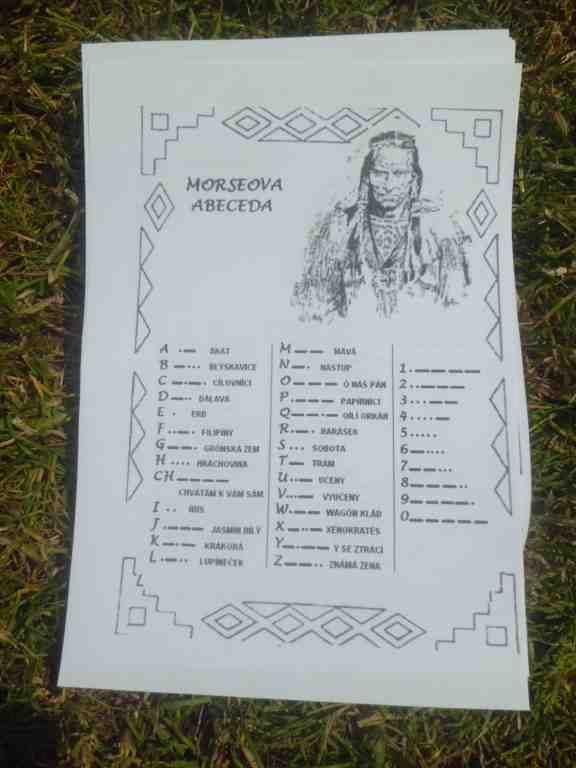 MORSEOVA
ABECEDA
A ·— AKÁT
B —··· BLÝSKAVICE
C —·—· CÍLOVNÍCI
D —·· DÁLAVA
E · ERB
F ··—· FILIPÍNY
G ——· GRÓNSKÁ ZEM
H ···· HRACHOVINA
CH ————
CHVÁTÁM K VÁM SÁM
I ··
J ·——— JASMÍN BÍLÝ
K —·— KRÁKORÁ
L ·—·· LUPÍNEČEK
M —— MÁVÁ
N —· NÁSTUP
O ——— Ó NÁŠ PÁN
P ·——· PAPÍRNÍCI
Q ——·— QÍLÍ ORKÁN
R ·—· RARÁŠEK
S ··· SOBOTA
T — TRÁM
U ··— UČENÝ
V ···— VYUČENÝ
W ·—— WAGÓN KLÁD
X —··— XÉNOKRATÉS
Y —·—— Ý SE ZTRÁCÍ
Z ——·· ZNÁMÁ ŽENA
1 ·————
2 ··———
3 ···——
4 ····—
5 ·····
6 —····
7 ——···
8 ———··
9 ————·
0 —————